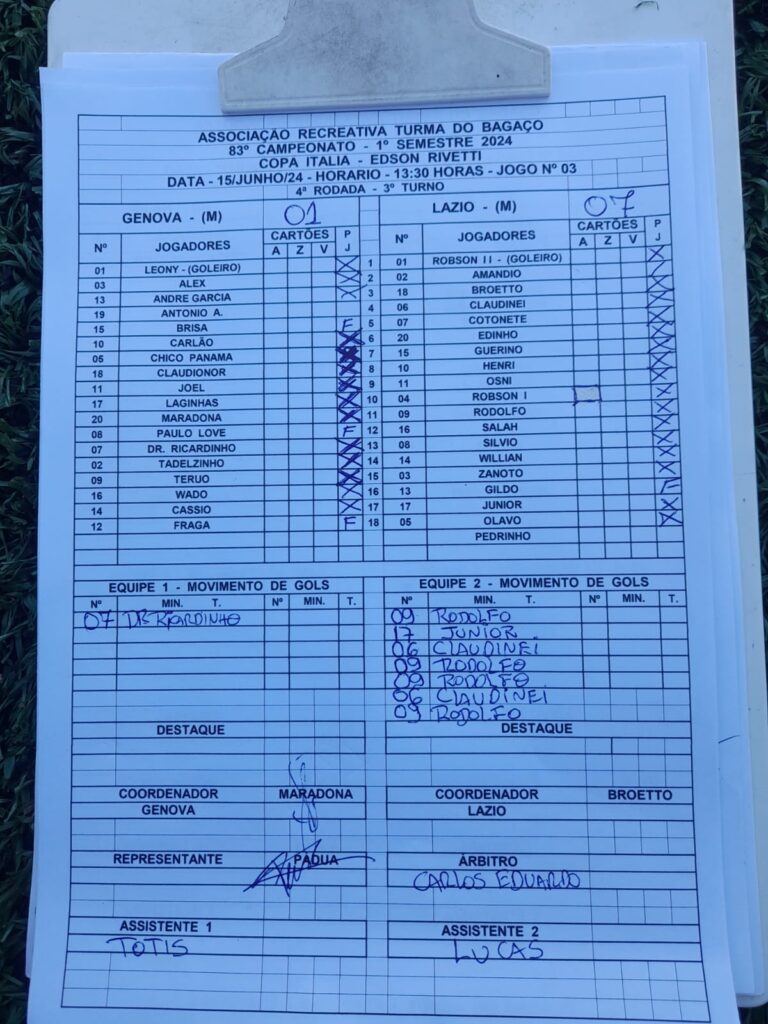 ASSOCIAÇÃO RECREATIVA TURMA DO BAGAÇO
83º CAMPEONATO - 1º SEMESTRE 2024
COPA ITALIA - EDSON RIVETTI
DATA - 15/JUNHO/24 - HORARIO - 13:30 HORAS - JOGO Nº 03
4ª RODADA - 3º TURNO
GENOVA - (M) 01 LAZIO - (M) 07
Nº JOGADORES CARTÕES P J Nº JOGADORES CARTÕES P J
A Z V A Z V
01 LEONY - (GOLEIRO) X 1 01 ROBSON II - (GOLEIRO) X
03 ALEX X 2 02 AMANDIO X
13 ANDRE GARCIA X 3 18 BROETTO X
19 ANTONIO A. 4 06 CLAUDINEI X
15 BRISA F 5 07 COTONETE X
10 CARLÃO X 6 20 EDINHO X
05 CHICO PANAMA X 7 15 GUERINO X
18 CLAUDIONOR X 8 10 HENRI X
11 JOEL X 9 11 OSNI X
17 LAGINHAS X 10 04 ROBSON I X
20 MARADONA X 11 09 RODOLFO X
08 PAULO LOVE F 12 16 SALAH X
07 DR. RICARDINHO X 13 08 SILVIO X
02 TADELZINHO X 14 14 WILLIAN X
09 TERUO X 15 03 ZANOTO X
16 WADO X 16 13 GILDO F
14 CASSIO X 17 17 JUNIOR X
12 FRAGA F 18 05 OLAVO X
PEDRINHO
EQUIPE 1 - MOVIMENTO DE GOLS EQUIPE 2 - MOVIMENTO DE GOLS
Nº MIN. T. Nº MIN. T. Nº MIN. T. Nº MIN. T.
07 DR RICARDINHO 09 RODOLFO
17 JUNIOR
06 CLAUDINEI
09 RODOLFO
09 RODOLFO
06 CLAUDINEI
09 RODOLFO
DESTAQUE DESTAQUE
COORDENADOR MARADONA COORDENADOR BROETTO
GENOVA LAZIO
REPRESENTANTE PADUA ÁRBITRO
CARLOS EDUARDO
ASSISTENTE 1 ASSISTENTE 2
TOTIS LUCAS